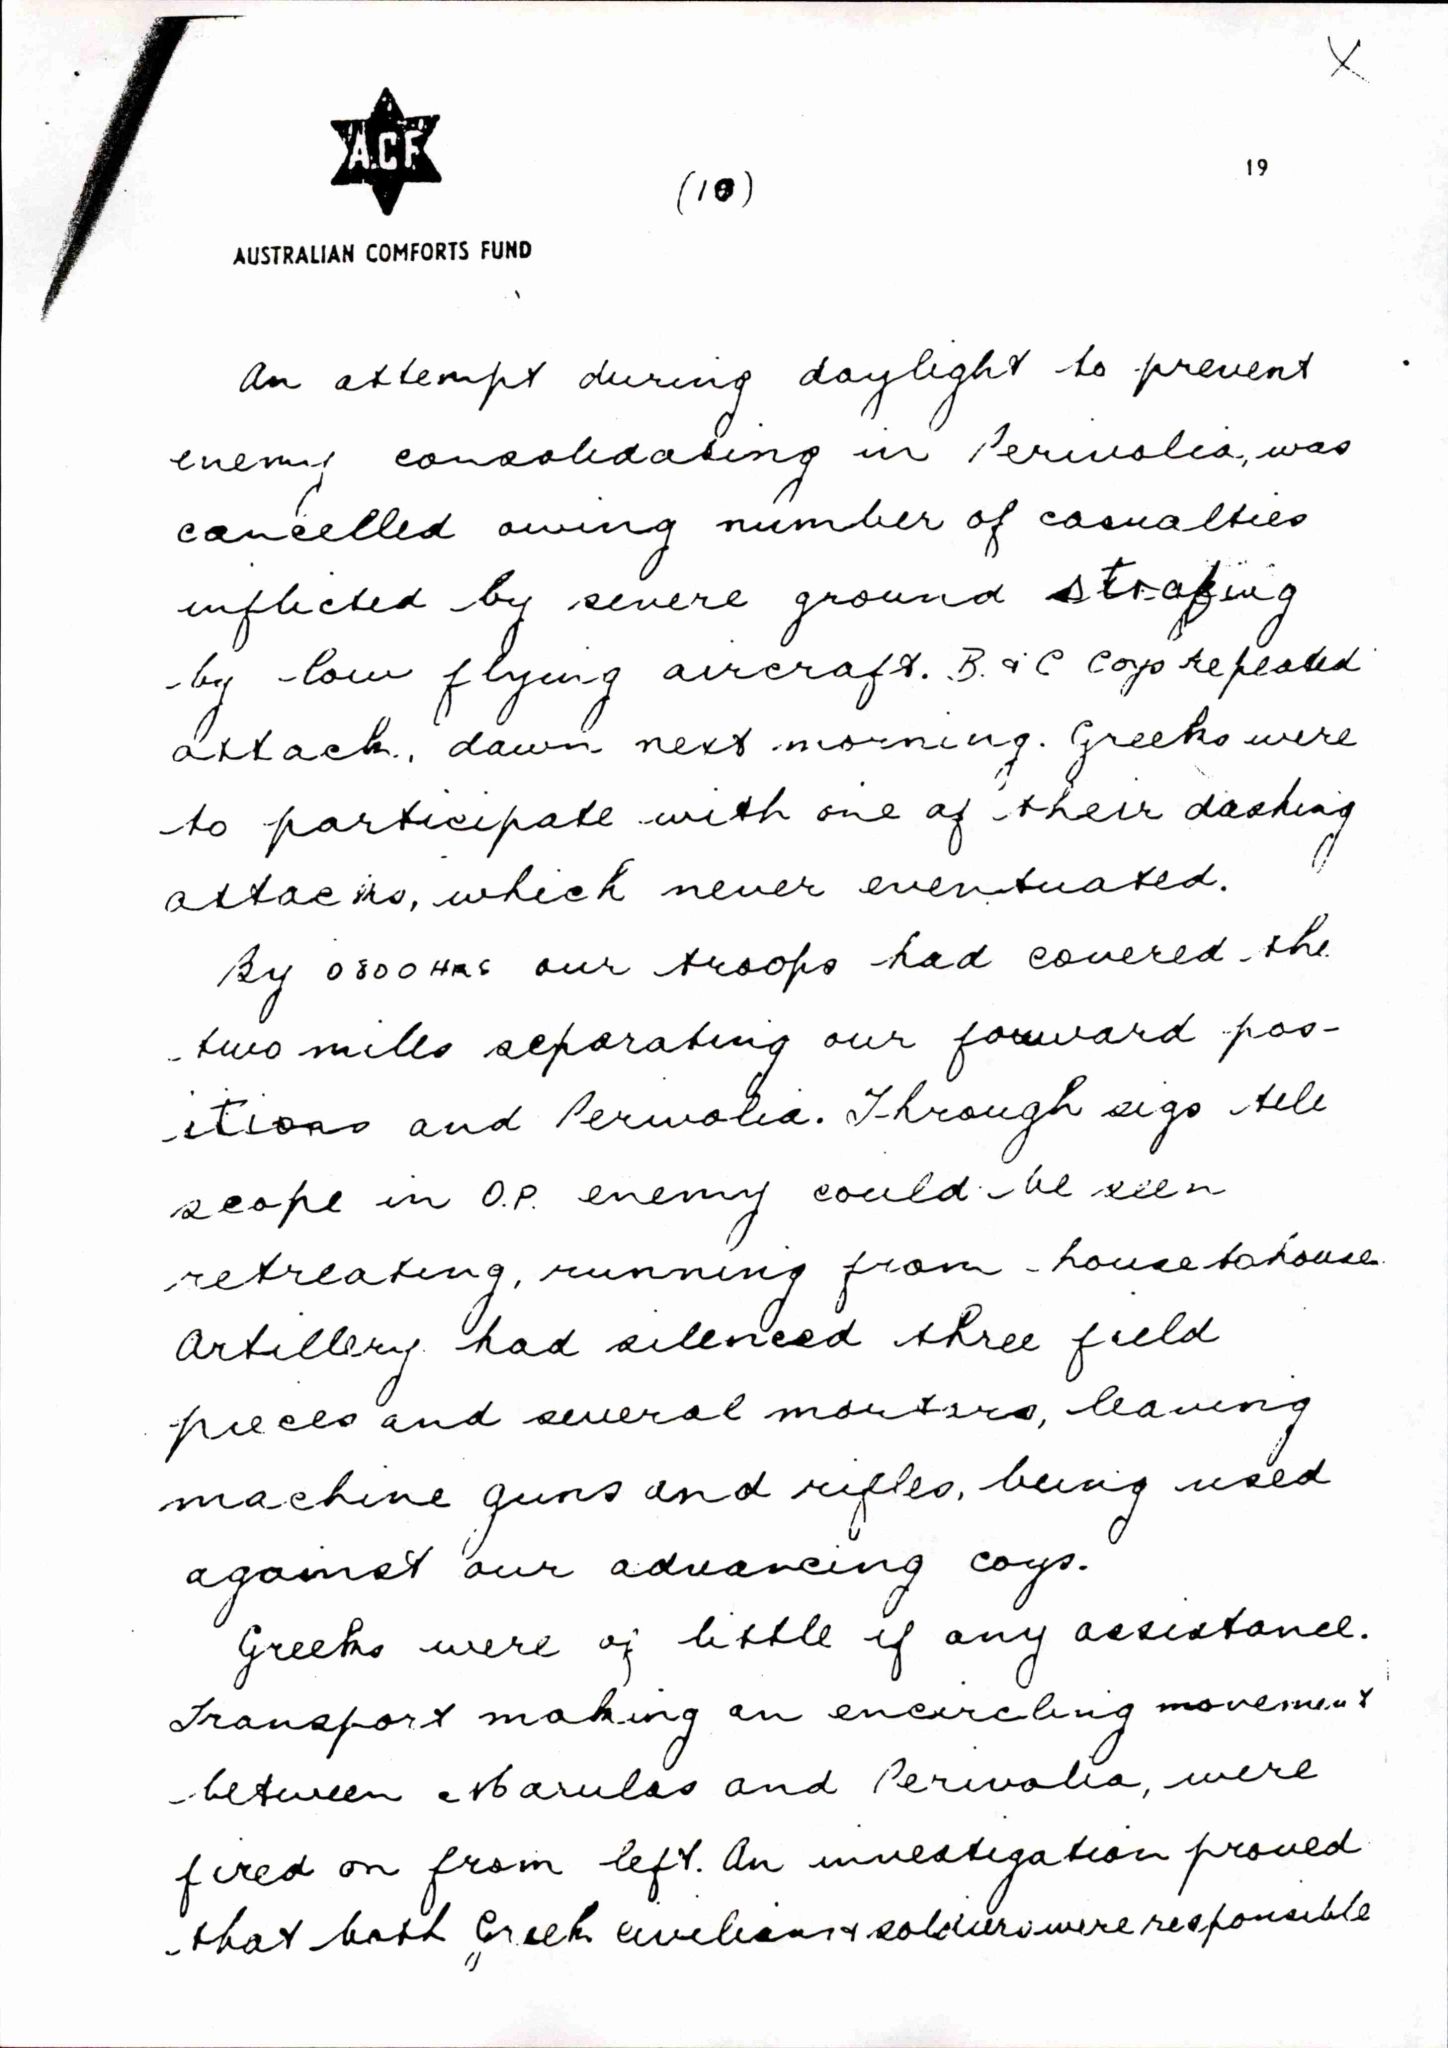 X
A.C.F.
(10)
19
AUSTRALIAN COMFORTS FUND
An attempt during daylight to prevent
enemy consolidating in Perivolia, was
cancelled owing number of casualties
inflicted by severe ground strafing
by low flying aircraft. B. & C Coys repeated
attack, dawn next morning. Greeks were
to participate with one of their dashing
attacks, which never eventuated.
By 0800 HRS our troops had covered the
two miles separating our forward pos-
itions and Perivolia. Through sigs tele
scope in O.P. enemy could be seen
retreating, running from house to house.
Artillery had silenced three field
pieces and several mortars, leaving
machine guns and rifles, being used
against our advancing coys.
Greeks were of little if any assistance.
Transport making an encircling movement
between Marulas and Perivolia, were
fired on from left. An investigation proved
that both Greek civilians & soldiers were responsible